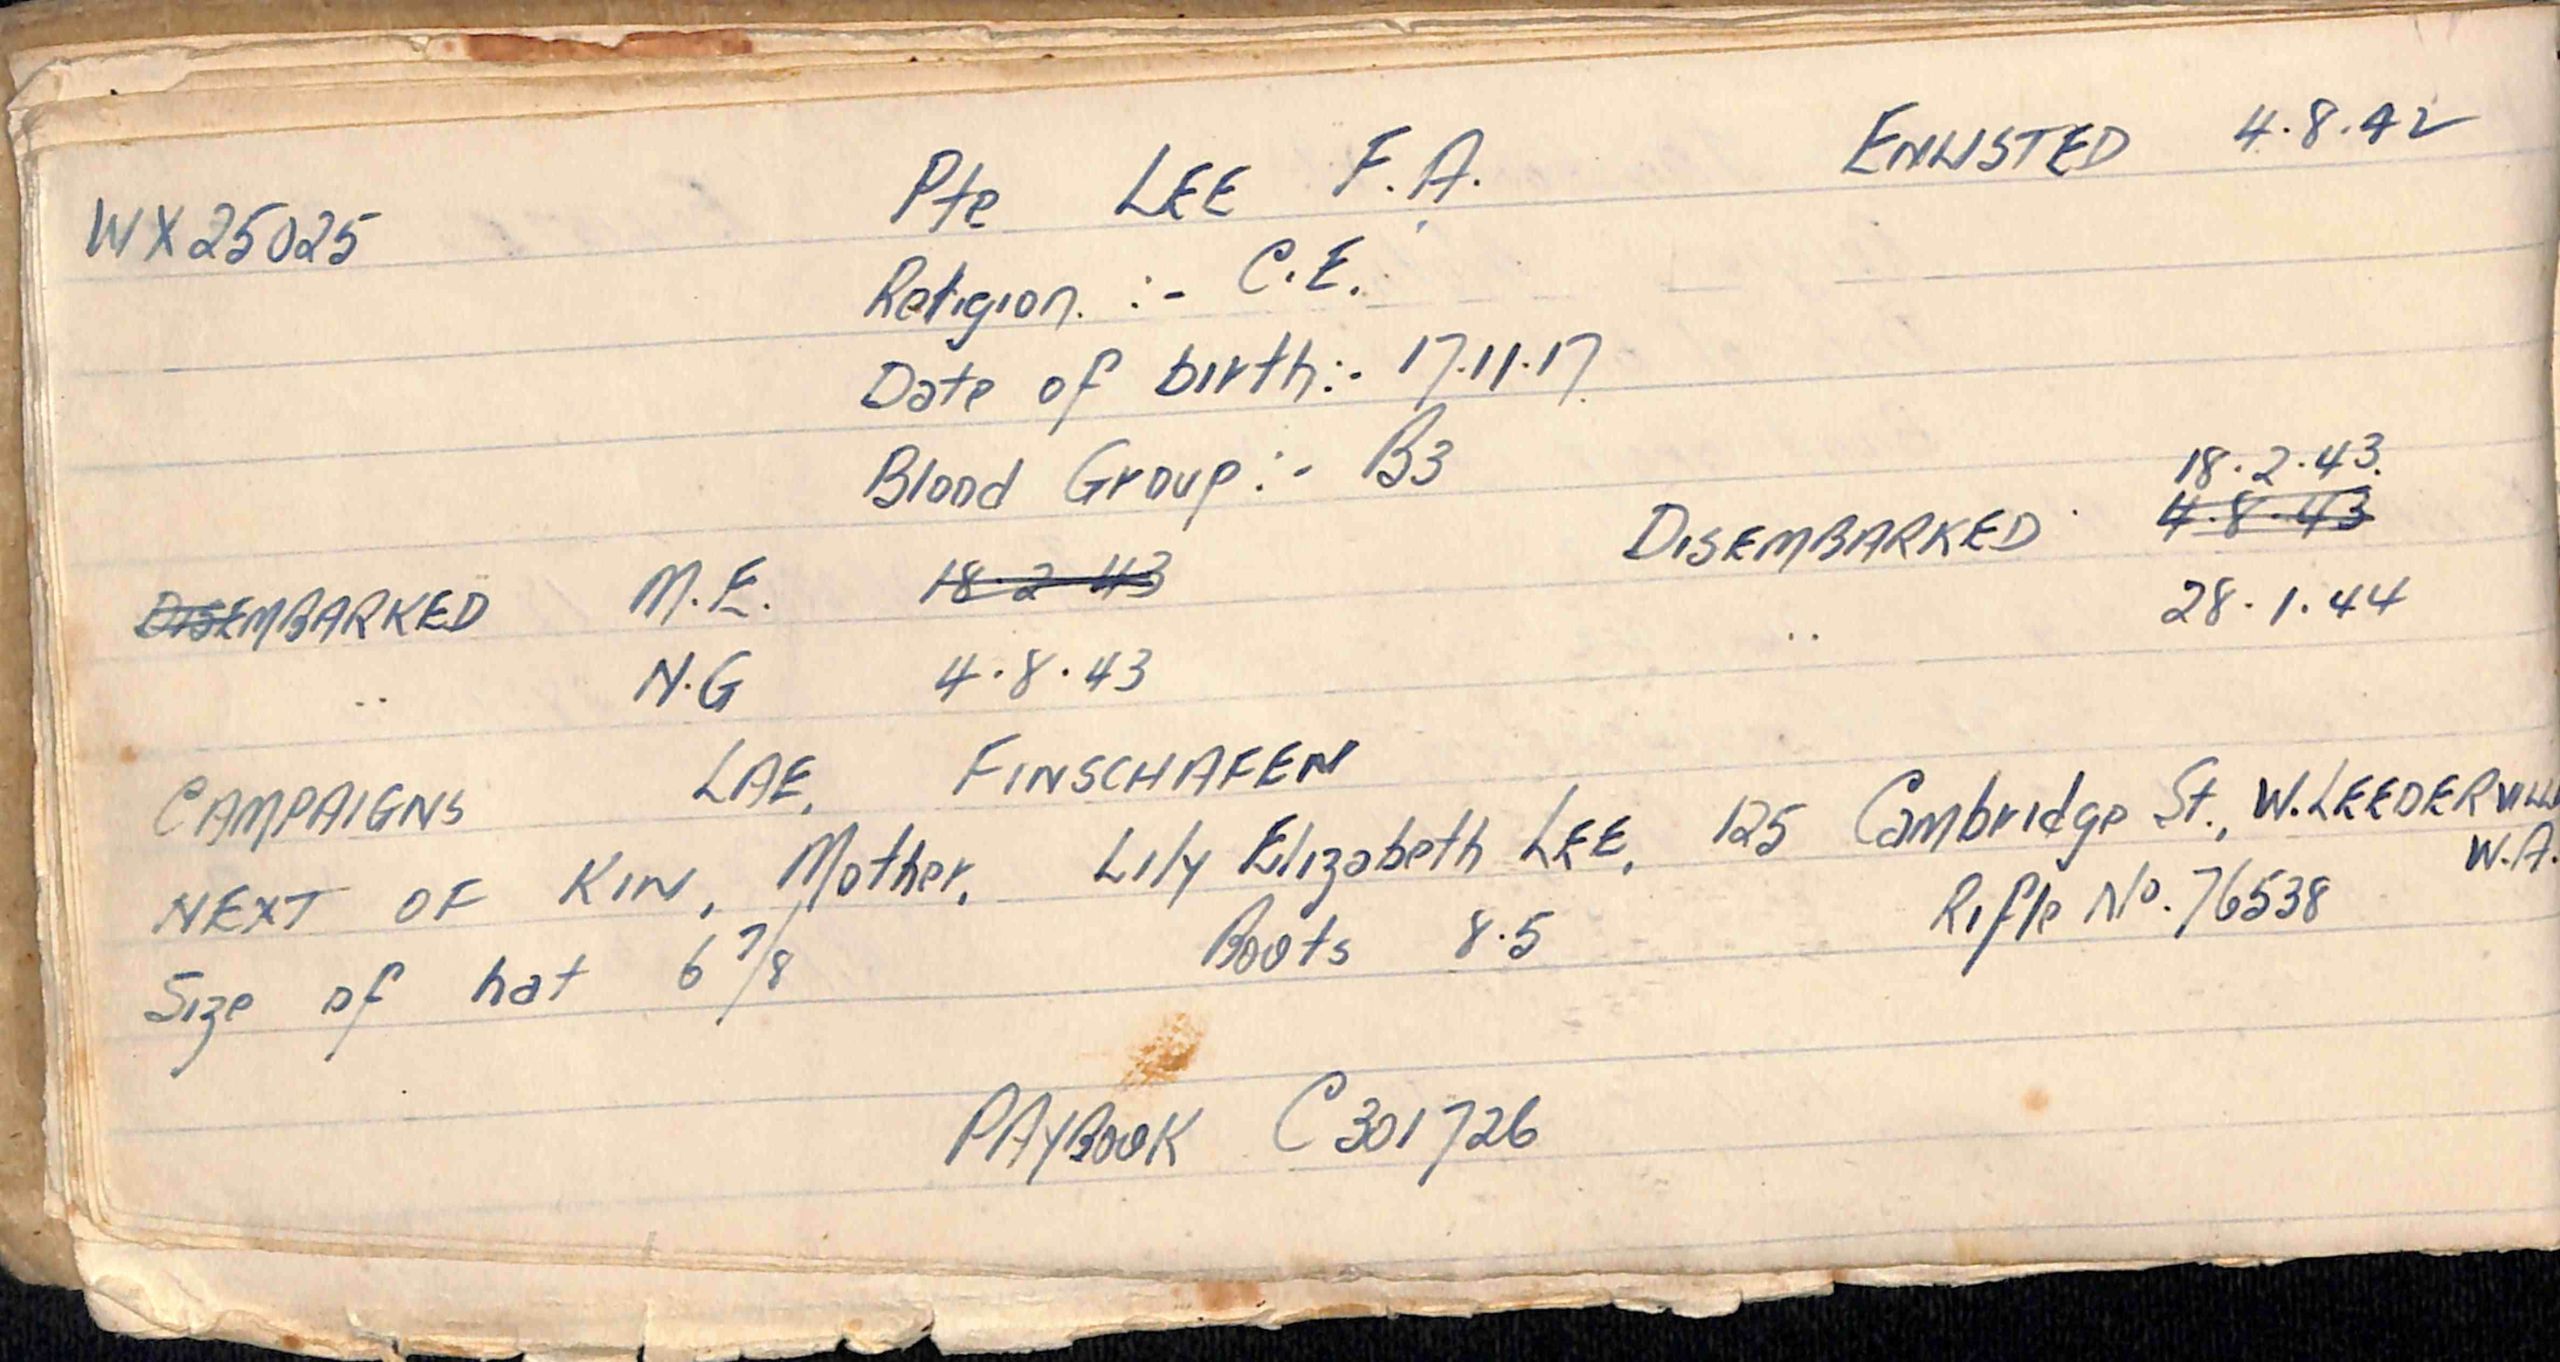 WX25025 Pte LEE F.A. ENLISTED 4.8.42
Religion. :- C.E.
Date of birth:- 17.11.17.
Blood Group:- B3
18.2.43.
DISEMBARKED M.E. 18.2.43 DISEMBARKED 4.8.43
.. N.G 4.8.43 .. 28.1.44
CAMPAIGNS LAE, FINSCHAFEN
NEXT OF KIN, Mother, Lily Elizabeth LEE, 125 Cambridge St., W.LEEDERVILLE
W.A.
Size of hat 6 7/8 Boots 8.5 Rifle No. 76538
PAYBOOK C301726